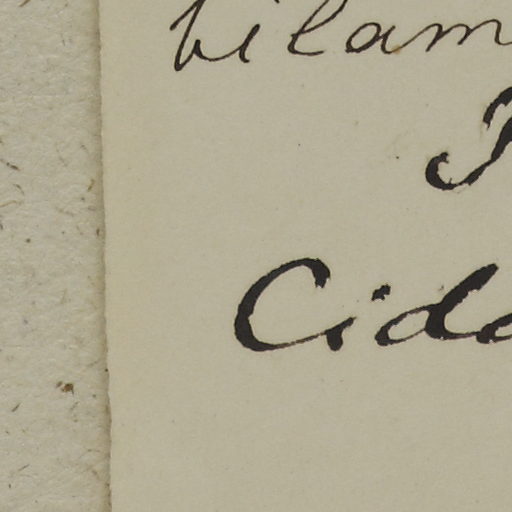 bilam
J
Cida